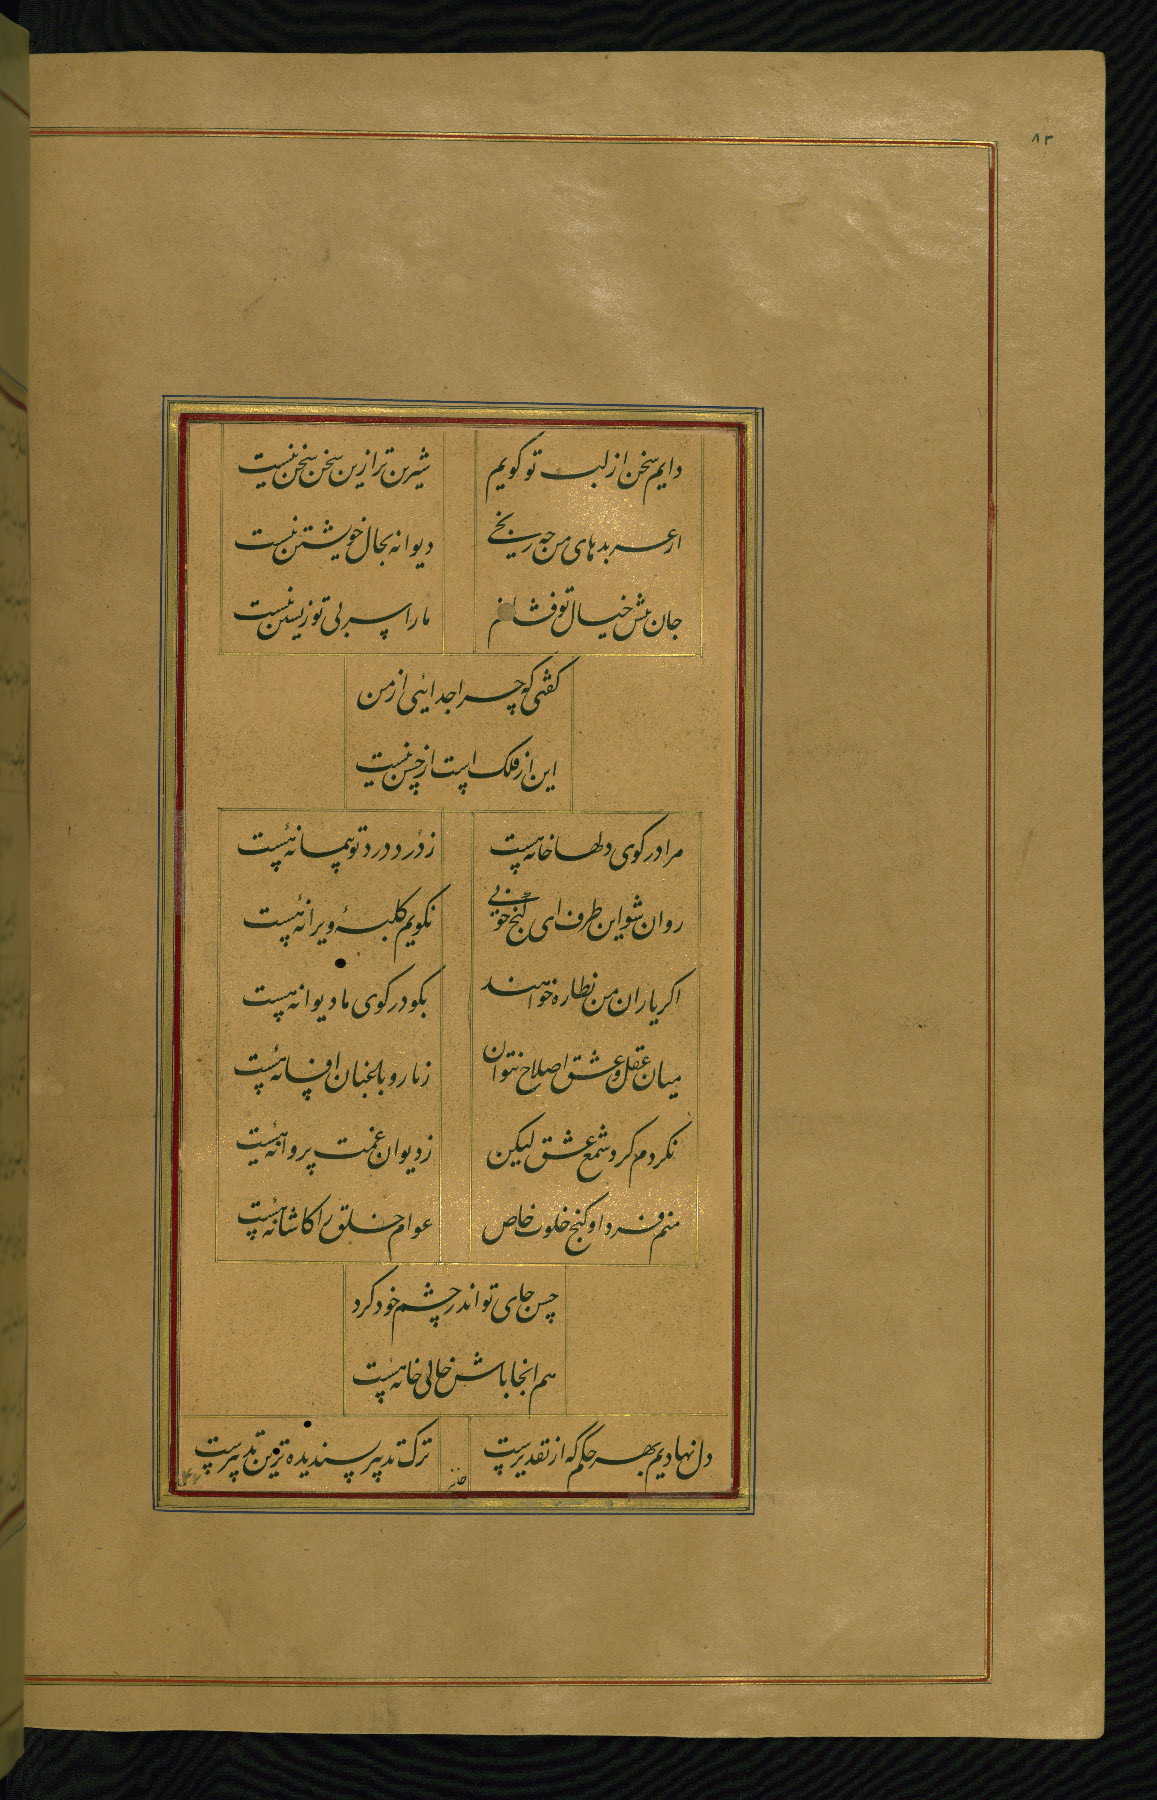 ۸۳
دایم سخن از لب تو کویم شیرین تر ازین سخن سخن نیست
از عربدهای من چه رنجی دیوانه بحال خویشتن نیست
جان پیش خیال تو فشانم مارا سر بی تو زیستن نیست
کفتی که چرا جدایئی از من
این از فلک است از حسن نیست
مرا در کوی دلها خانه هست ز درد درد تو پیمانه هست
روان شو این طرف ای کنج خوبی نکویم کلبهٔ ویرانه هست
اکر یاران من نظاره خواهند بکو در کوی ما دیوانه هست
میان عقل و عشق اصلاح نتوان زنار و پنبه‌شان افسانه هست
نکردم کرد شمع عشق لیکن ز دیوان غمت پروانه هست
منم فرد او کنج خلوت خاص عوام خلق را کاشانه هست
حسن جای تو اندر چشم خود کرد
هم انجا باش خالی خانه هست
دل نهادیم بهر حکم که از تقدیرست ترک تدبیر پسندیده ترین تدبیرست